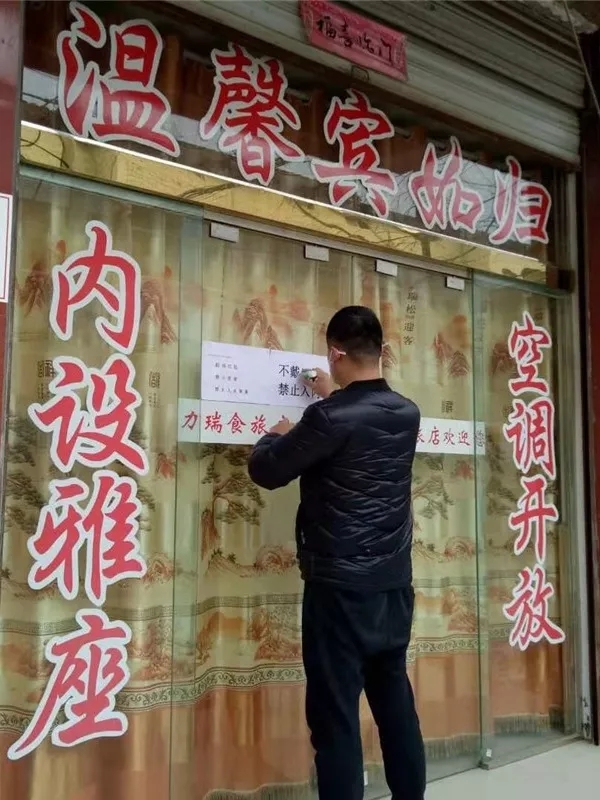 福喜临门
温馨宾如归
内设雅座
瑞松迎客
不戴
禁止入
力瑞食旅
店欢迎
空调开放